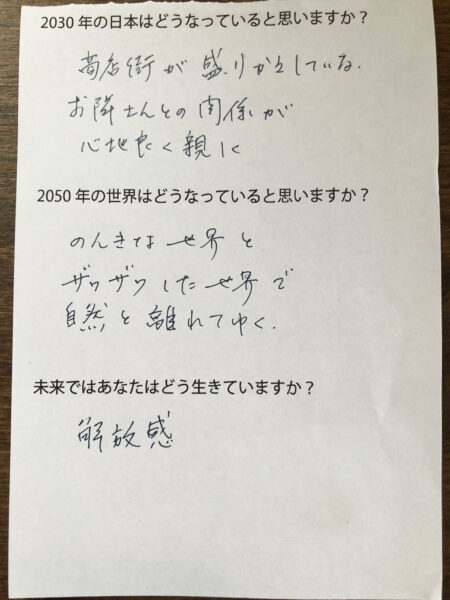 2030 年の日本はどうなっていると思いますか？
商店街が盛りかえしている.
お隣さんとの関係が
心地良く親しく
2050 年の世界はどうなっていると思いますか？
のんきな世界と
ザワザワした世界で
自然と離れてゆく.
未来ではあなたはどう生きていますか？
解放感